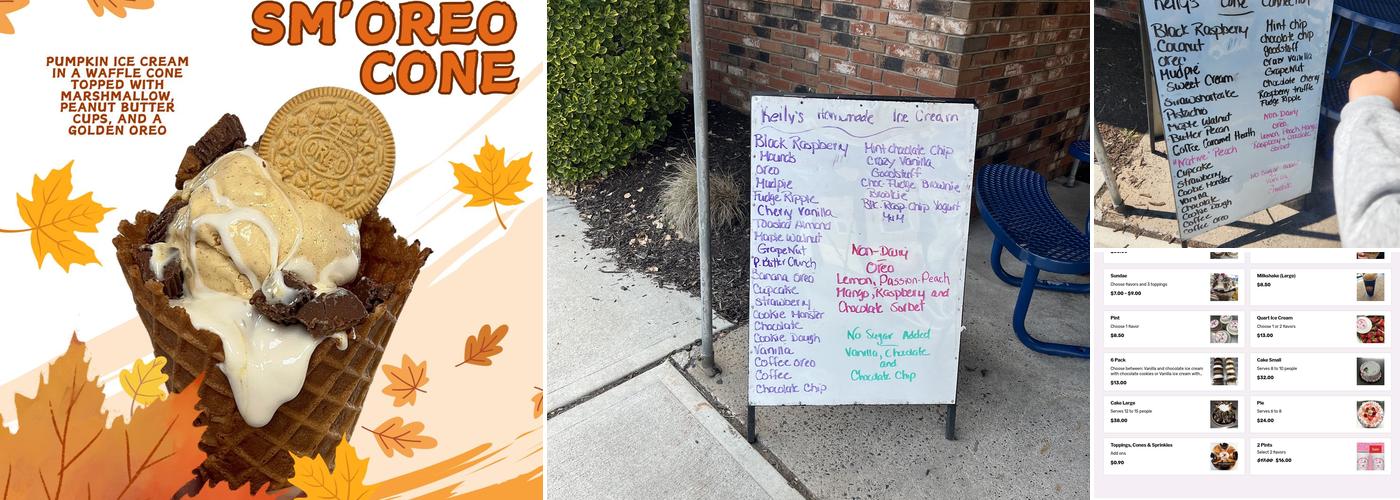 SM'OREO
CONE
PUMPKIN ICE CREAM
IN A WAFFLE CONE
TOPPED WITH
MARSHMALLOW,
PEANUT BUTTER
CUPS, AND A
GOLDEN OREO
Kelly's Homemade Ice Cream
Black Raspberry
Mounds
Oreo
Mudpie
Fudge Ripple
Cherry Vanilla
Toasted Almond
Maple Walnut
GrapeNut
P. Butter Crunch
Banana Oreo
Cupcake
Strawberry
Cookie Monster
Chocolate
Cookie Dough
Vanilla
Coffee Oreo
Coffee
Chocolate Chip
Mint chocolate Chip
Crazy Vanilla
Goodstuff
Choc Fudge Brownie
Blk. Rasp. Chip Yogurt
Non-Dairy
Oreo
Lemon, Passion-Peach
Mango, Raspberry and
Chocolate Sorbet
No Sugar Added
Vanilla, Chocolate
and
Chocolate Chip
Kelly's Cone Connection
Black Raspberry
Coconut
Oreo
Mudpie
Sweet Cream
Strawshortcake
Pistachio
Maple Walnut
Butter Pecan
Coffee Caramel Heath
"Native" Peach
Cupcake
Strawberry
Cookie Monster
Vanilla
Chocolate
Cookie Dough
Coffee
Coffee Oreo
Mint chip
chocolate chip
goodstuff
Crazy Vanilla
GrapeNut
Chocolate Cherry
Raspberry truffle
Fudge Ripple
Non-Dairy
Oreo
Lemon, Peach, Mango
Raspberry & Chocolate
Sorbet
No Sugar Added
Vanilla
Chocolate
Sundae
Choose flavors and 3 toppings
$7.00 - $9.00
Milkshake (Large)
$8.50
Pint
Choose 1 flavor
$8.50
Quart Ice Cream
Choose 1 or 2 flavors
$13.00
6 Pack
Choose between: Vanilla and chocolate ice cream
with chocolate cookies or Vanilla ice cream with...
$13.00
Cake Small
Serves 8 to 10 people
$32.00
Cake Large
Serves 12 to 15 people
$38.00
Pie
Serves 6 to 8
$24.00
Toppings, Cones & Sprinkles
Add ons
$0.90
2 Pints
Select 2 flavors
$17.00 $16.00